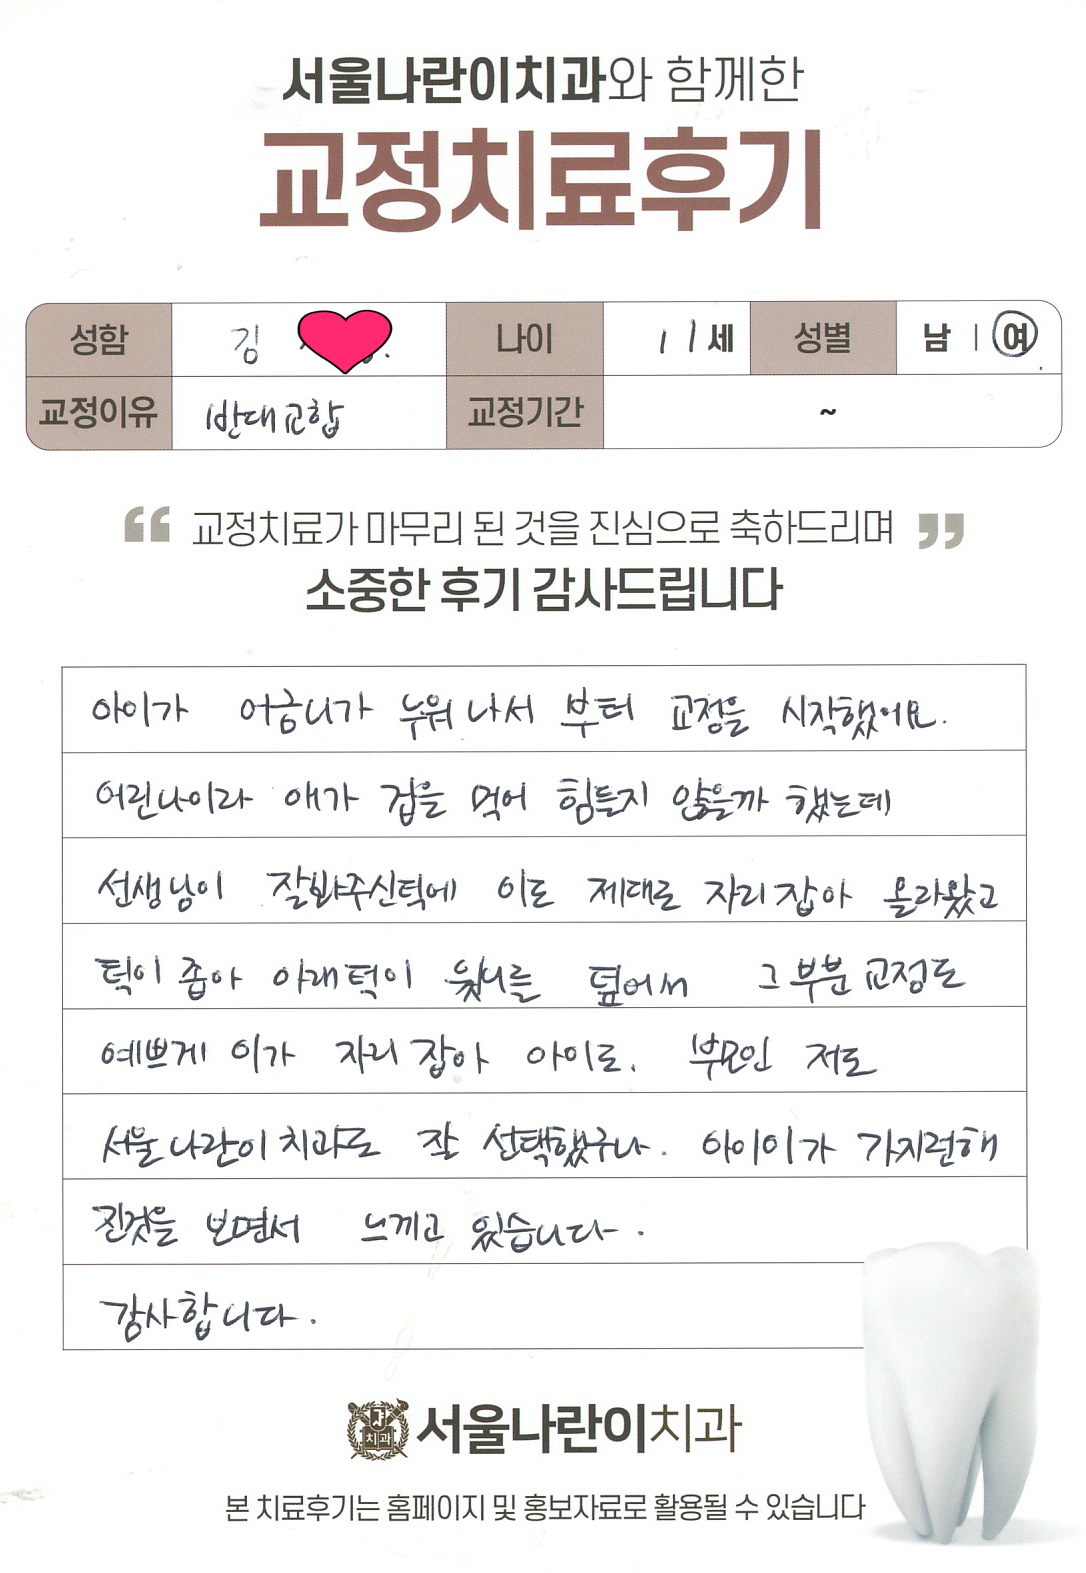 서울나란이치과와 함께한
교정치료후기
성함 김 나이 11세 성별 남 | 여
교정이유 반대교합 교정기간 ~
“ 교정치료가 마무리 된 것을 진심으로 축하드리며 ”
소중한 후기 감사드립니다
아이가 어금니가 누워 나서 부터 교정을 시작했어요.
어린나이라 애가 겁을 먹어 힘들지 않을까 했는데
선생님이 잘봐주신턱에 이도 제대로 자리잡아 올라왔고
턱이 좁아 아래턱이 윗니를 덮어서 그부분교정도
예쁘게 이가 자리잡아 아이도. 부모인 저도
서울나란이치과로 잘 선택했구나. 아이이가 가지런해
진것을 보면서 느끼고 있습니다.
감사합니다.
치과
서울나란이치과
본 치료후기는 홈페이지 및 홍보자료로 활용될 수 있습니다